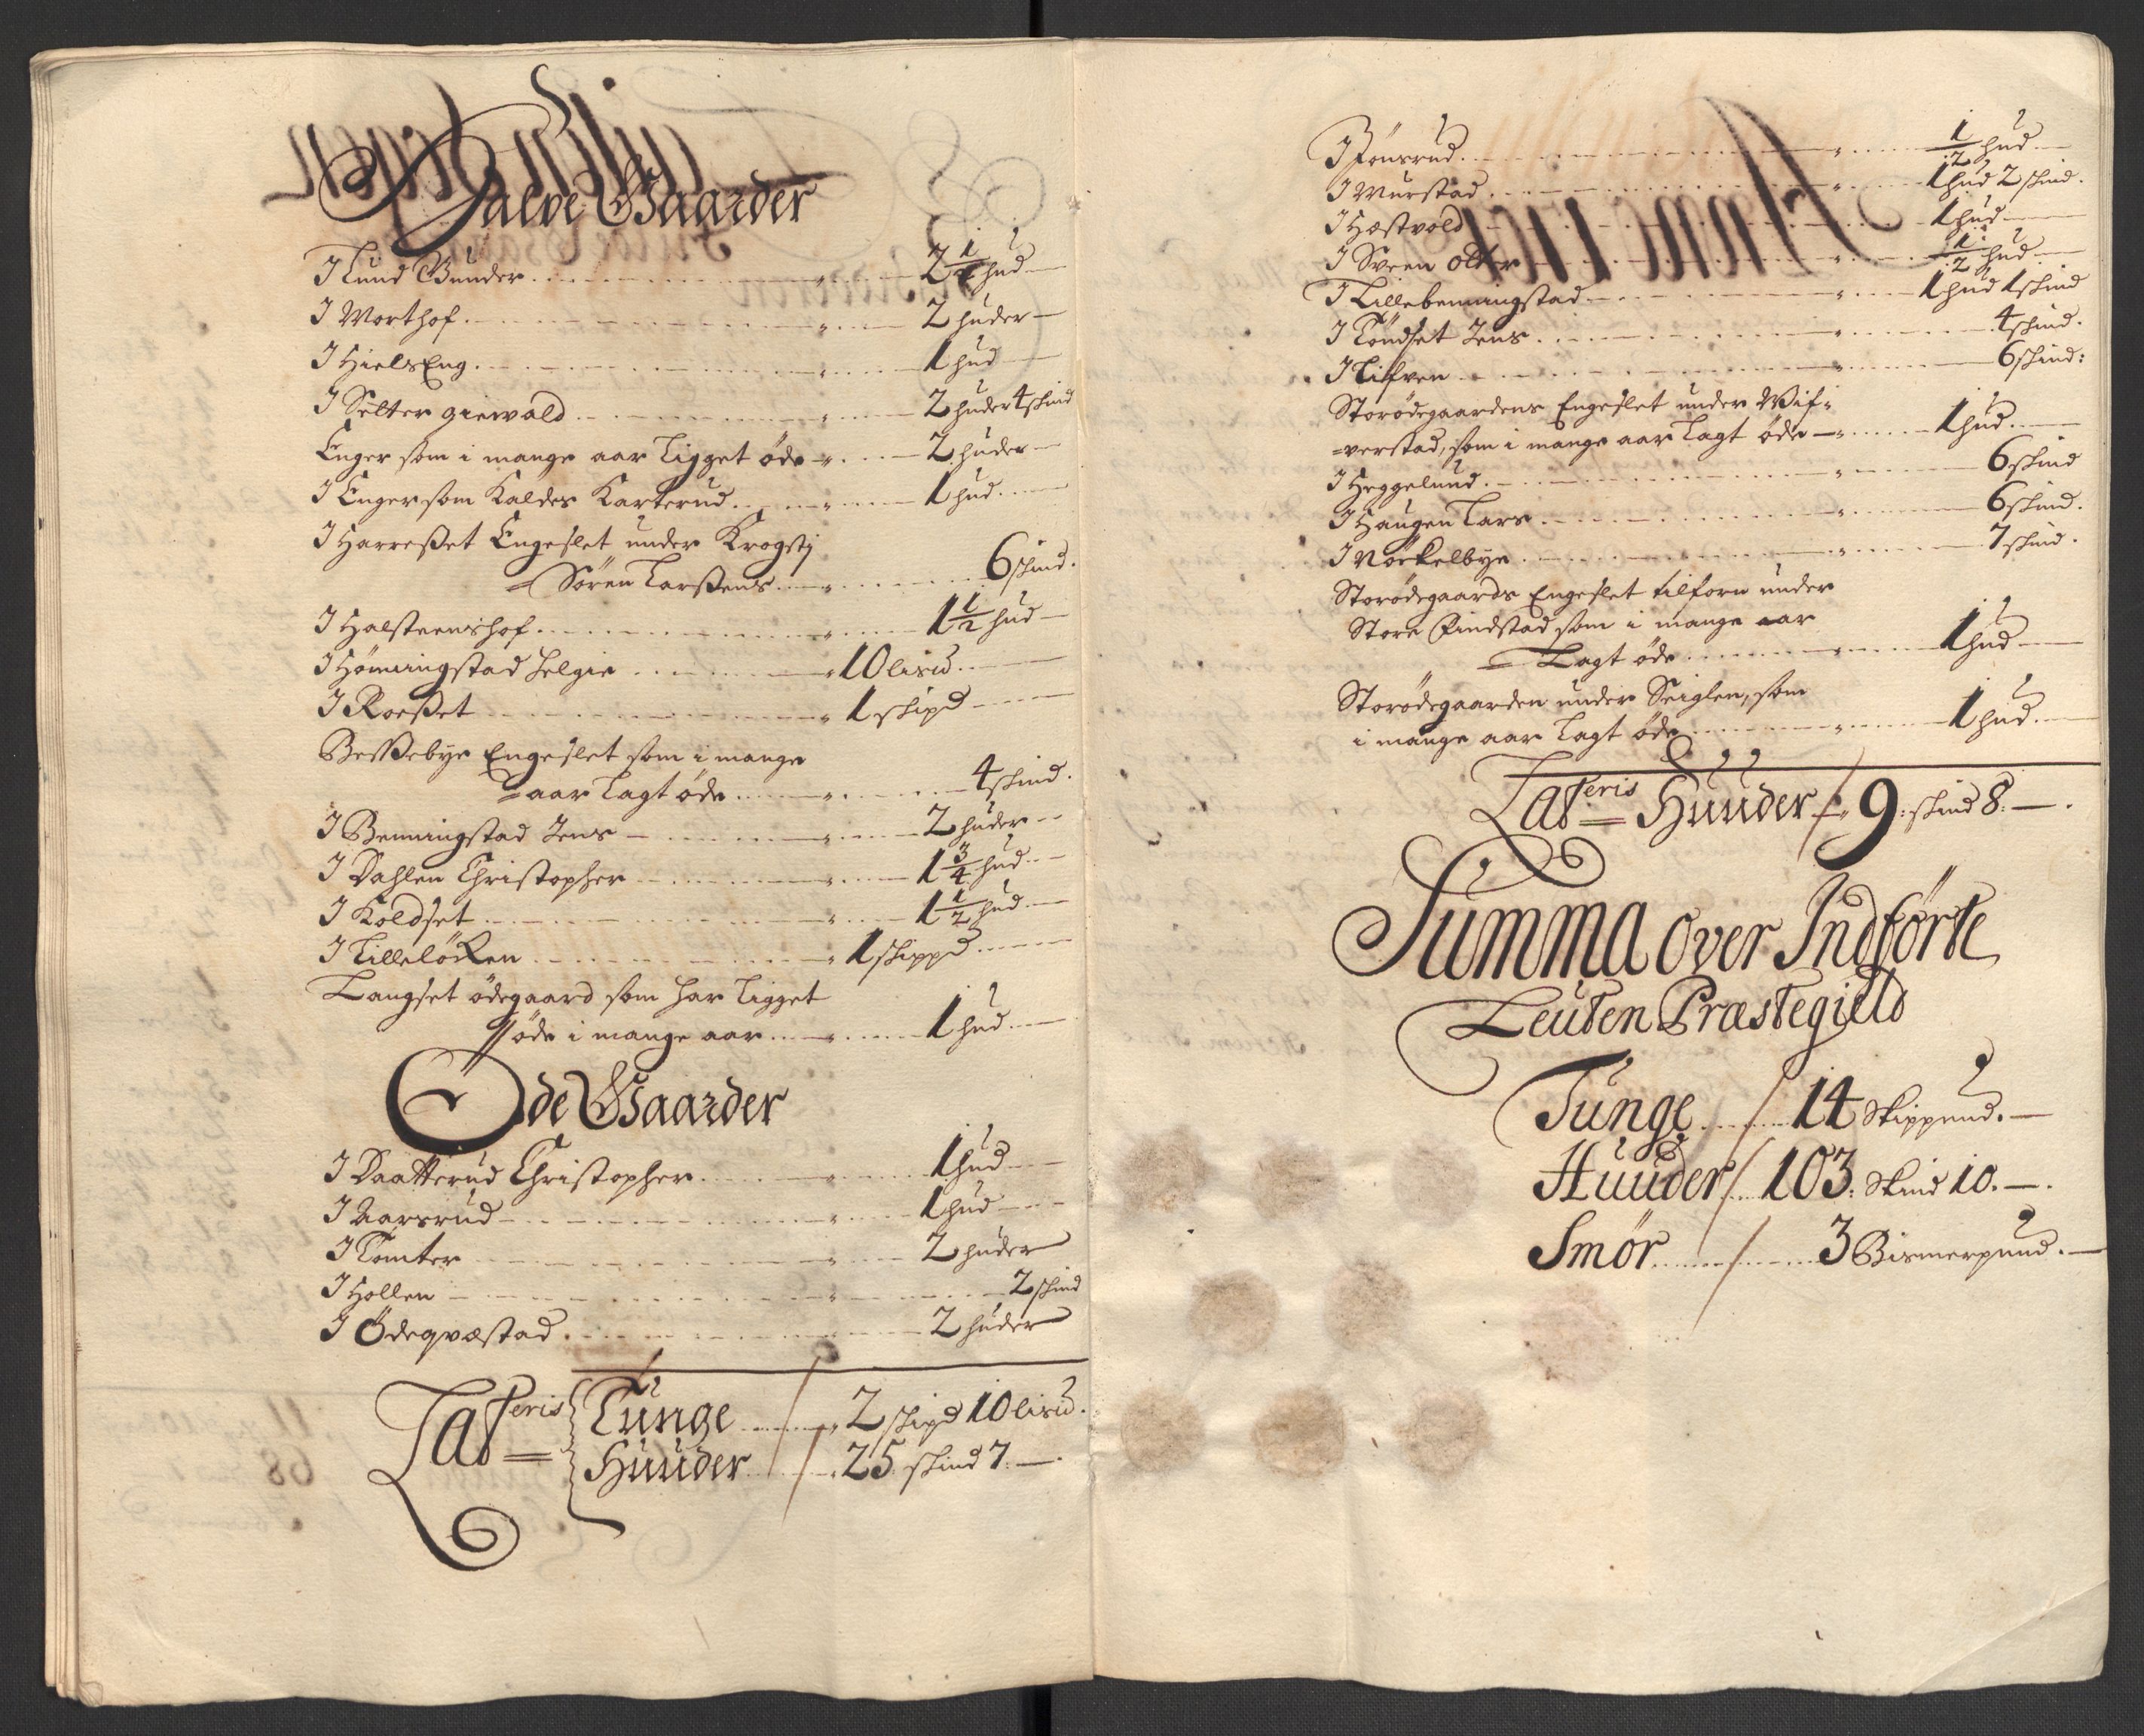 Halve Gaarder
I Lund Gunder 2 1/2 hud
I Worthof 2 huder
I HielsEng 1 hud
I Selter giewald 2 huder 4 skind
Enger som i mange aar Ligget öde 2 huder
I Enger som Kaldes Karterud 1 hud
I Harreset Engeslet under Krogstj
Sören Larssens 6 skind
I Halsteenshof 1 1/2 hud
I Hömmingstad Helgie 10 lisu
I Roesset 1 skipd
Bessebye Engeslet som i mange
aar Lagt öde 4 skind
I Benningstad Jens 2 huder
I Dahlen Christopher 1 3/4 hud
I Koldset 1 1/2 hud
I Lillelöken 1 skippd
Langset ödegaard som har Ligget
öde i mange aar 1 hud
Öde Gaarder
I Daatterud Christopher 1 hud
I Aarsrud 1 hud
I Tomter 2 huder
I Hollen 2 skind
I Ödeqvæstad 2 huder
Lateris Tunge 2 skipd 10 lisu
Huuder 25 skind 7
I Fönsrud 1/2 hud
I Murstad 1 hud 2 skind
I Hæstvold 1 hud
I Sveen 1/2 hud
I Lillebenningstad 1 hud 1 skind
I Töndset Jens 4 skind
I 6 skind
Storödegaardens Engeslet under Wif-
verstad, som i mange aar Lagt öde 1 hud
I Heggelund 6 skind
I Haugen Lars 6 skind
I Nörkelbye 7 skind
Storödegaards Engeslet tilforn under
Store Findstad som i mange aar
Lagt öde 1 hud
Storödegaarden under Seiglen, som
i mange aar Lagt öde 1 hud
Lateris Huuder 9: skind 8.
Summa over Indförte
Leuten Præstegield
Tunge 14 Skippund.
Huuder 103: Skind 10.
Smör 3 Bismerpund.